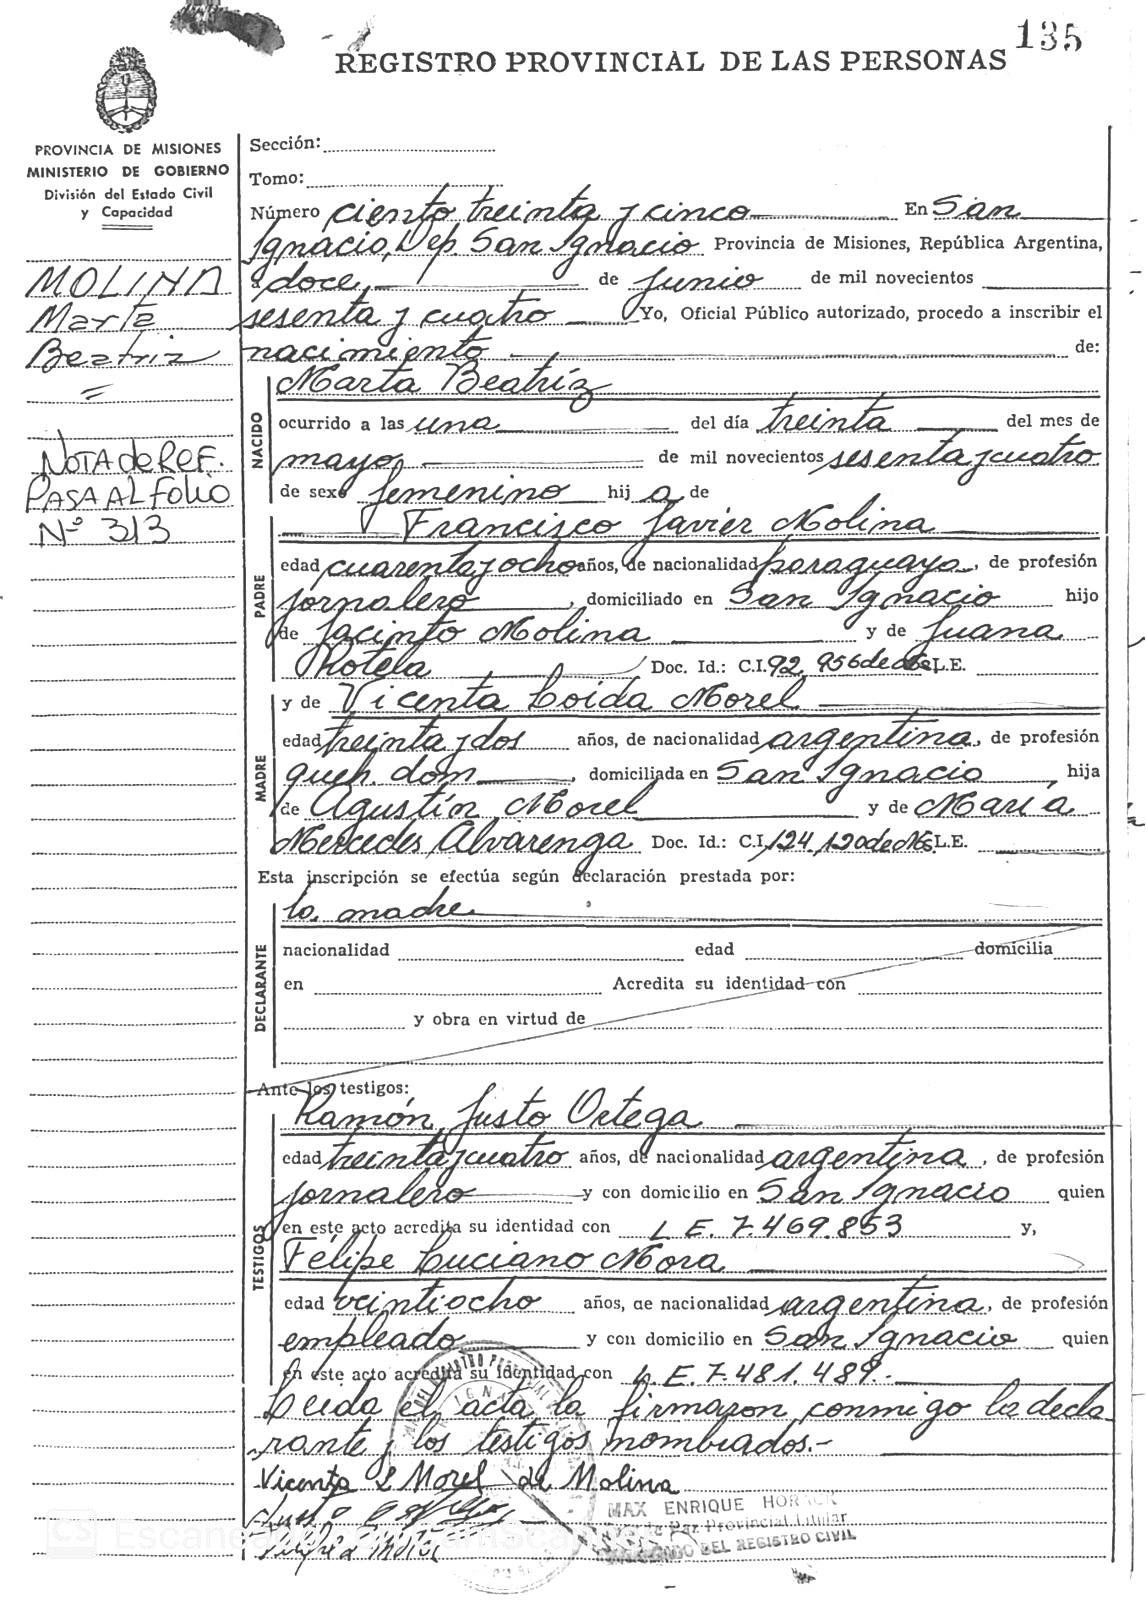 135
REGISTRO PROVINCIAL DE LAS PERSONAS
PROVINCIA DE MISIONES
MINISTERIO DE GOBIERNO
División del Estado Civil
y Capacidad
MOLINA
Marta
Beatriz
=
NOTA de REF.
PASA AL FOLIO
Nº 313
Sección:
Tomo:
Número ciento treinta y cinco En San
Ignacio, Dep. San Ignacio Provincia de Misiones, República Argentina,
a doce, de Junio de mil novecientos
sesenta y cuatro Yo, Oficial Público autorizado, procedo a inscribir el
nacimiento de:
NACIDO
Marta Beatríz
ocurrido a las una del día treinta del mes de
mayo de mil novecientos sesenta y cuatro
de sexo femenino hij a de
PADRE
Francisco Javier Molina
edad cuarenta y ocho años, de nacionalidad paraguaya, de profesión
jornalero, domiciliado en San Ignacio hijo
de Jacinto Molina y de Juana
Rotela Doc. Id.: C.I. 92.956 de L.E.
MADRE
y de Vicenta Loida Morel
edad treinta y dos años, de nacionalidad argentina, de profesión
queh. dom, domiciliada en San Ignacio, hija
de Agustín Morel y de María
Mercedes Alvarenga Doc. Id.: C.I. 124.120 de Ms L.E.
Esta inscripción se efectúa según declaración prestada por:
DECLARANTE
la madre
nacionalidad edad domicilia
en Acredita su identidad con
y obra en virtud de
Ante los testigos:
TESTIGOS
Ramón Justo Ortega
edad treinta y cuatro años, de nacionalidad argentina, de profesión
jornalero y con domicilio en San Ignacio quien
en este acto acredita su identidad con L E. 7.469.853 y,
Felipe Luciano Mora
edad veintiocho años, de nacionalidad argentina, de profesión
empleado y con domicilio en San Ignacio quien
en este acto acredita su identidad con L. E. 7.481.489.-
Leida el acta la firmaron conmigo la decla
rante y los testigos nombrados.-
Vicenta L Morel de Molina
MAX ENRIQUE
de Paz Provincial Titular
DEL REGISTRO CIVIL
CS Escaneado con CamScanner